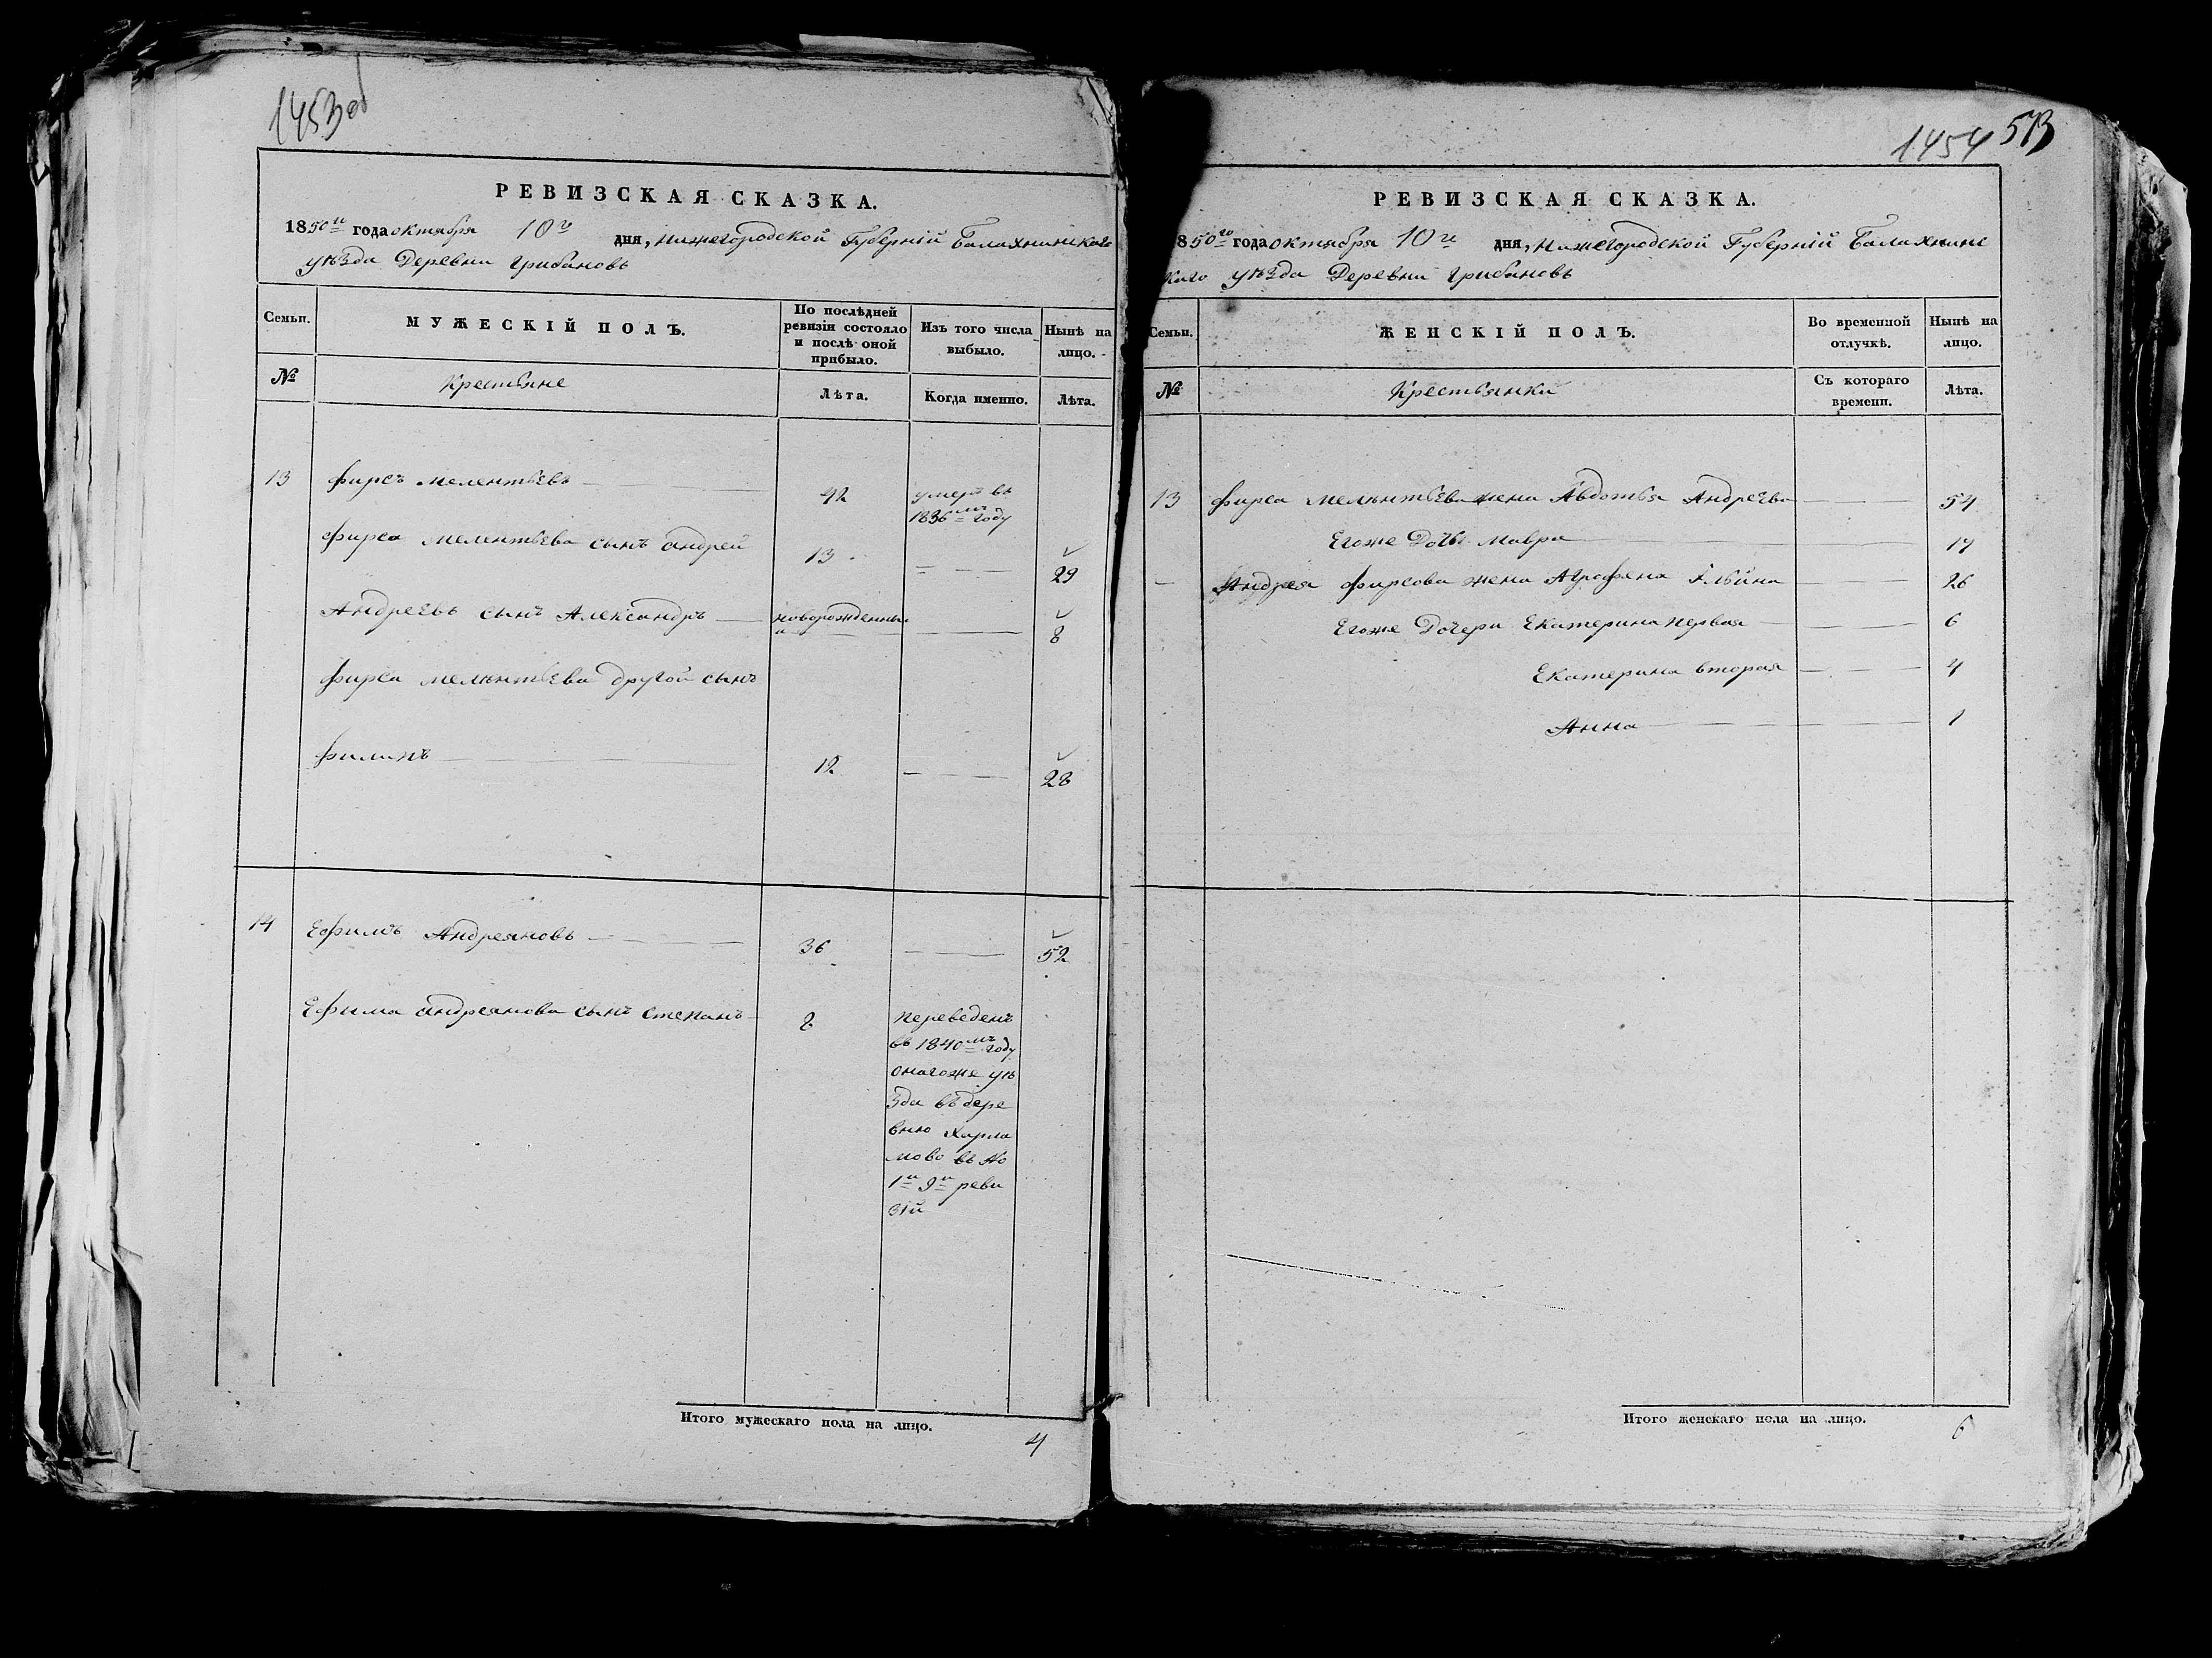 1453об
РЕВИЗСКАЯ СКАЗКА.
1850го года октября 10го дня, Нижегородской Губерніи Балахнинскаго
уѣзда Деревни Грибановъ
Семьи. МУЖЕСКІЙ ПОЛЪ. По послѣдней ревизіи состояло и послѣ оной прибыло. Изъ того числа выбыло. Нынѣ на лицо.
№ Крестьяне Лѣта. Когда именно. Лѣта.
13 Фирсъ Мелентьевъ 42 умеръ въ
1836мъ году
Фирса Мелентьева сынъ Андрей 13 29
Андреевъ сынъ Александръ новорожденны
й 8
Фирса Мелентьева другой сынъ
Филипъ 12 28
14 Ефимъ Андреяновъ 36 52
Ефима Андреянова сынъ Степанъ 8 переведенъ
въ 1840мъ году
онагоже уѣ
зда въ дере
вню Харла
мово въ №
1й 9й реви
зій
Итого мужескаго пола на лицо.
4
1454 573
РЕВИЗСКАЯ СКАЗКА.
850го года октября 10го дня, Нижегородской Губерніи Балахнинс
каго уѣзда Деревни Грибановъ
Семьи. ЖЕНСКІЙ ПОЛЪ. Во временной отлучкѣ. Нынѣ на лицо.
№ Крестьянки Съ котораго времени. Лѣта.
13 Фирса Мелентьева жена Авдотья Андреева 54
Егоже Дочь Мавра 19
Андрея Фирсова жена Аграфена Ильина 26
Егоже Дочери Екатерина первая 6
Екатерина вторая 4
Анна 1
Итого женскаго пола на лицо. 6